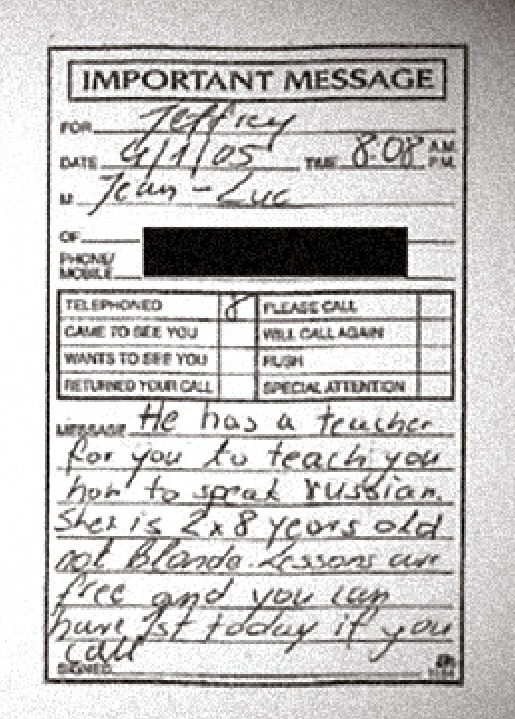 IMPORTANT MESSAGE
FOR Jeffrey
DATE 4/1/05 TIME 8:08 A.M. P.M.
M Jean-Luc
OF
PHONE/
MOBILE
TELEPHONED PLEASE CALL
CAME TO SEE YOU WILL CALL AGAIN
WANTS TO SEE YOU RUSH
RETURNED YOUR CALL SPECIAL ATTENTION
MESSAGE He has a teacher
for you to teach you
how to speak russian.
She is 2x8 years old
not Blonde. Lessons are
free and you can
have 1st today if you
call
SIGNED